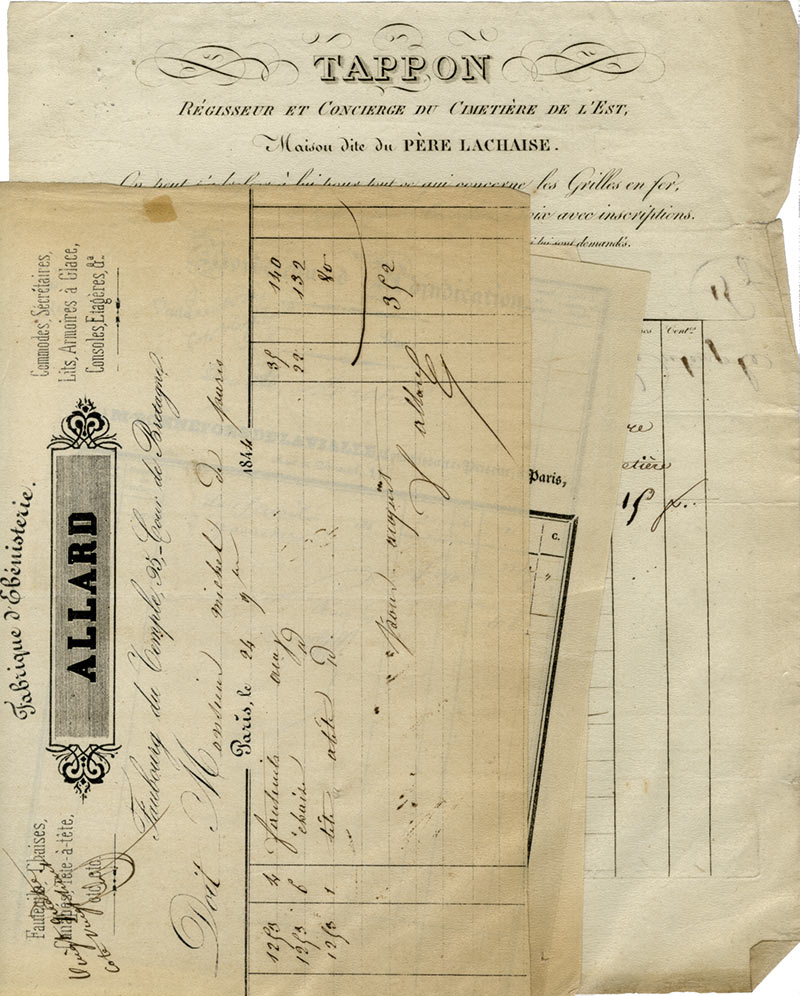 TAPPON
RÉGISSEUR ET CONCIERGE DU CIMETIÈRE DE L'EST,
Maison dite du PÈRE LACHAISE.
On peut à lui pour tout ce qui concerne les Grilles en fer,
avec inscriptions.
lui sont demandés.
Cent.s
15
Paris,
C.
Fabrique d'Ebénisterie.
Fauteuils, Chaises,
Canapés, Tête-à-tête,
ALLARD
Commodes, Secrétaires,
Lits, Armoires à Glace,
Consoles, Etagères, &a.
Faubourg du Temple, 93, Cour de Bretagne,
Doit Monsieur michel de paris
Paris, le 24 9 1844
1253 4 fauteuils 35 140
1253 6 chaises 22 132
1253 1 80
352
pour aquit
allard